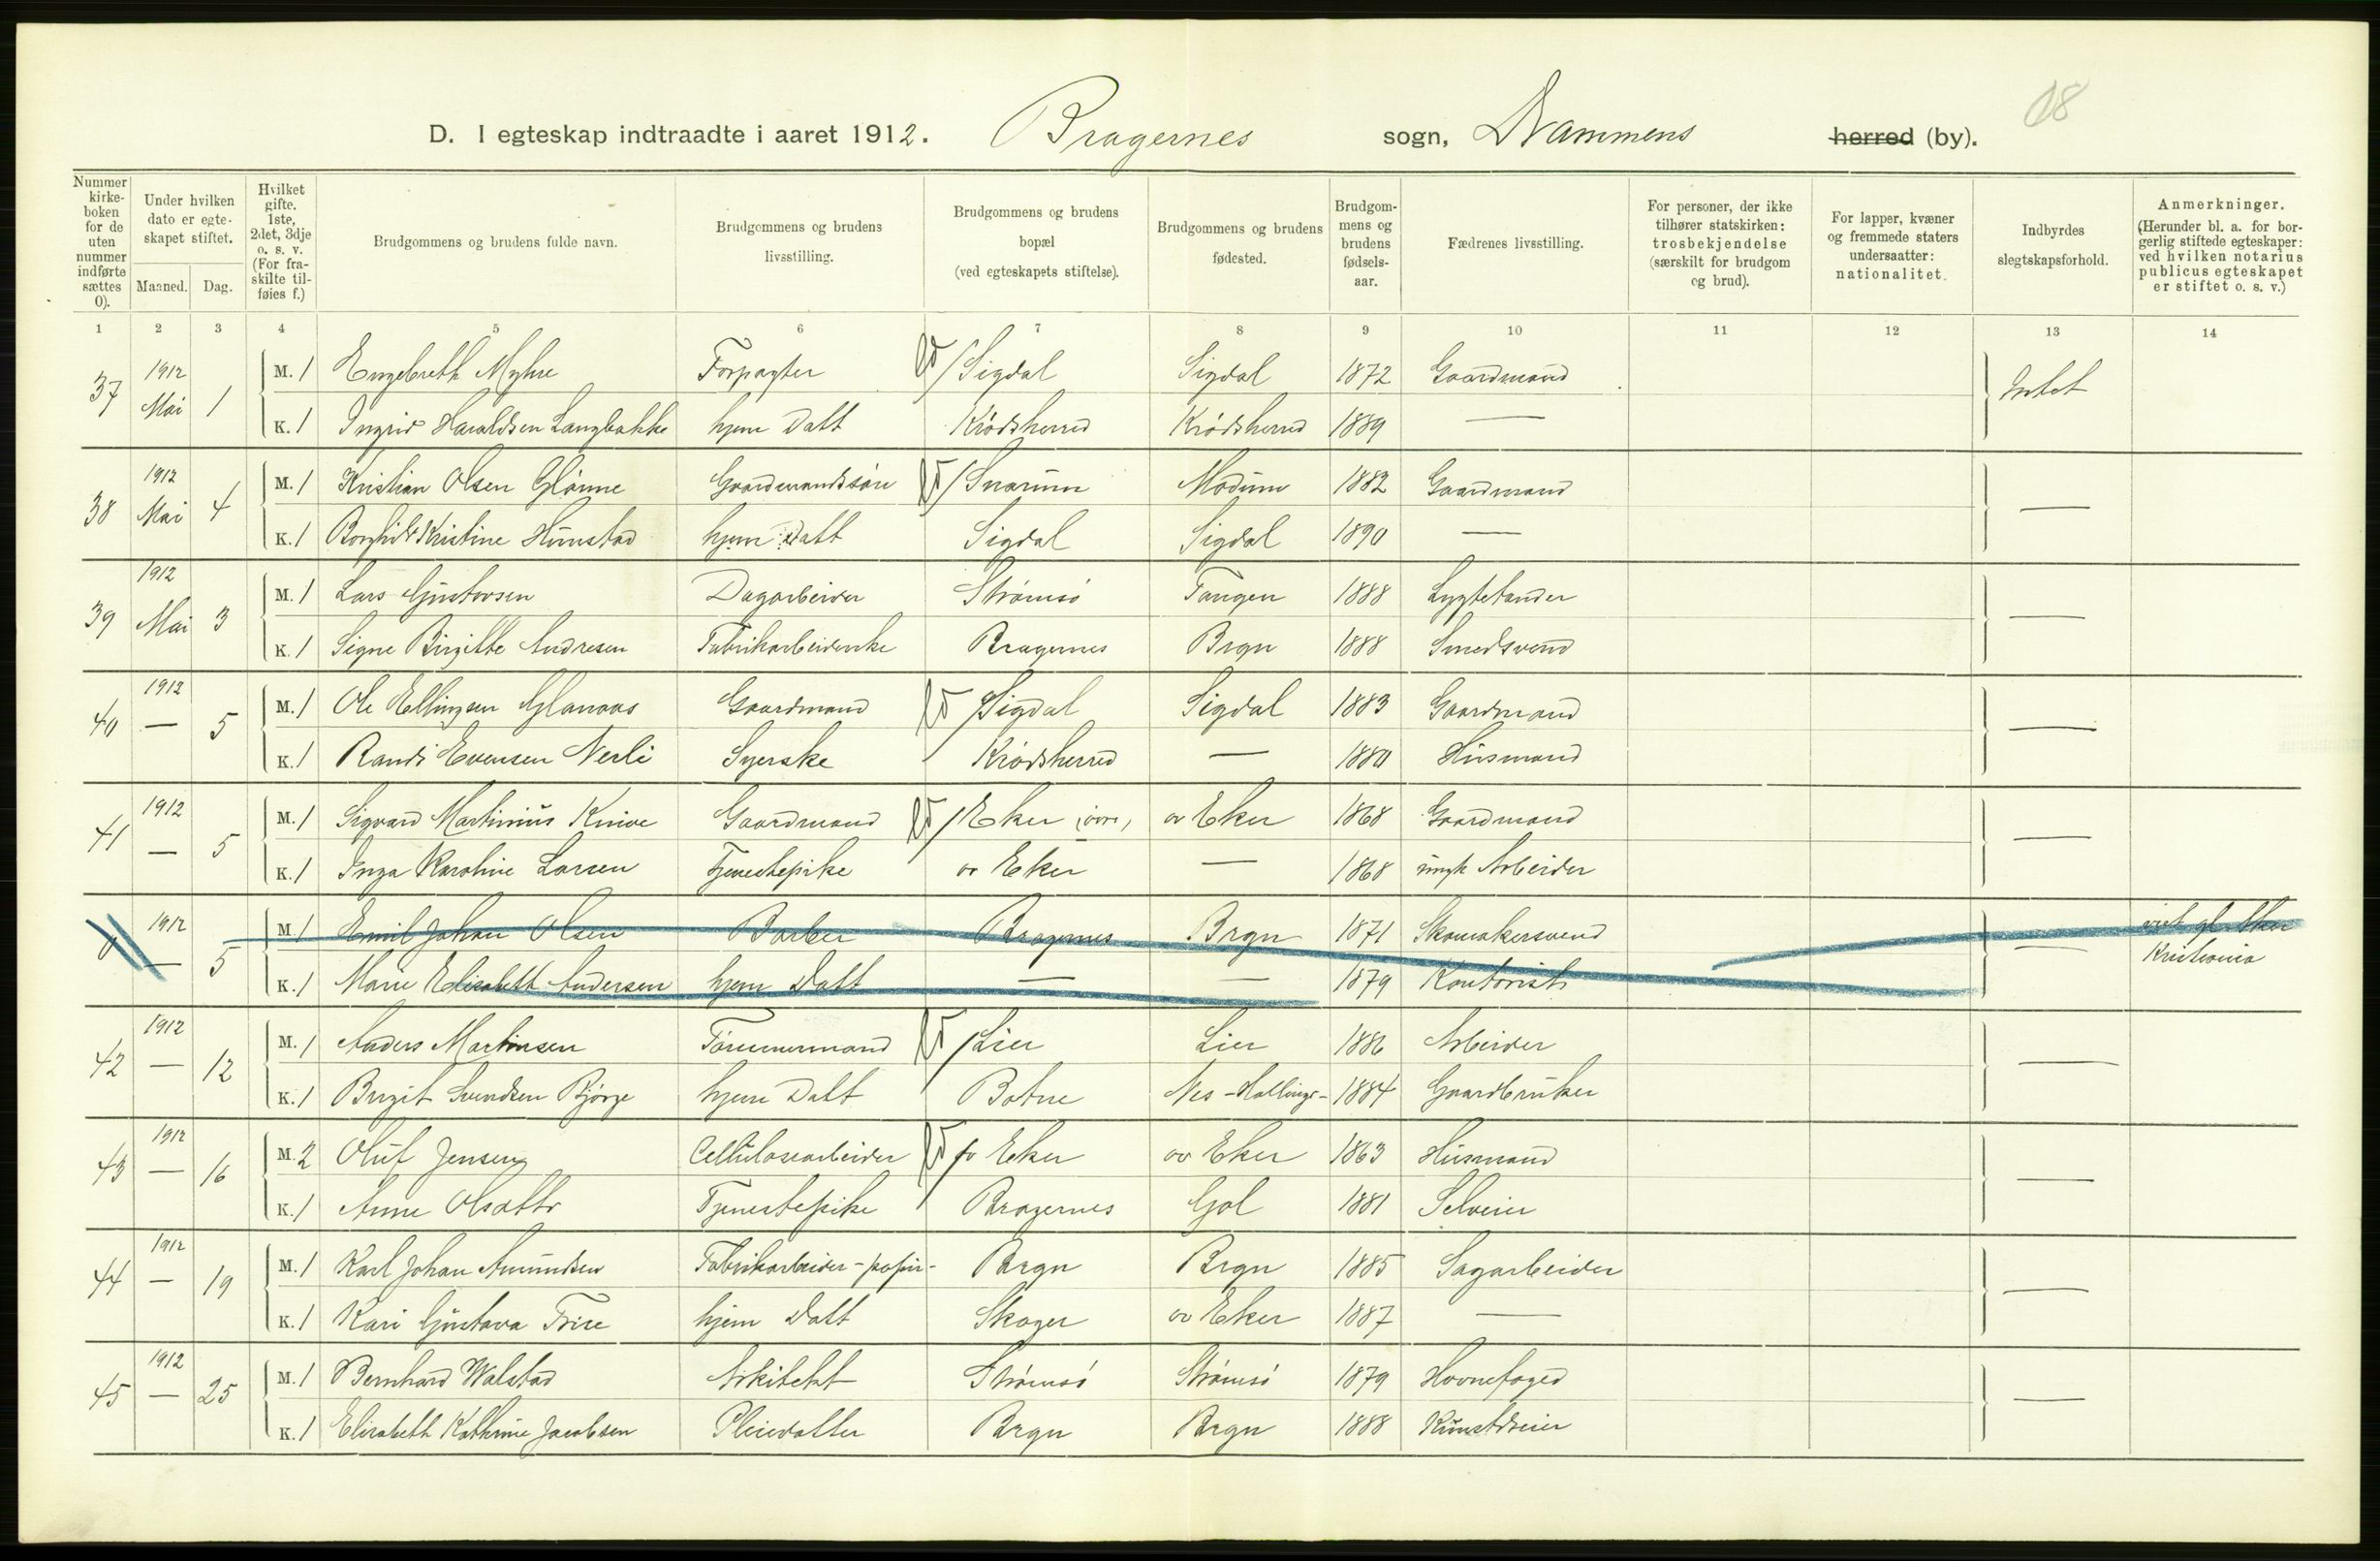 18
D. I egteskap indtraadte i aaret 1912. Bragernes sogn, Drammens herred (by).
Nummer kirke-boken for de uten nummer indførte sættes 0).
Under hvilken dato er egte-skapet stiftet.
Maaned. Dag.
Hvilket gifte. 1ste, 2det, 3dje o. s. v. (For fra-skilte til-føies f.)
Brudgommens og brudens fulde navn.
Brudgommens og brudens livsstilling.
Brudgommens og brudens bopæl (ved egteskapets stiftelse).
Brudgommens og brudens fødested.
Brudgom-mens og brudens fødsels-aar.
Fædrenes livsstilling.
For personer, der ikke tilhører statskirken: trosbekjendelse (særskilt for brudgom og brud).
For lapper, kvæner og fremmede staters undersaatter: nationalitet.
Indbyrdes slegtskapsforhold.
Anmerkninger. (Herunder bl. a. for bor-gerlig stiftede egteskaper: ved hvilken notarius publicus egteskapet er stiftet o. s. v.)
1 2 3 4 5 6 7 8 9 10 11 12 13 14
37 1912 Mai 1 M. 1 Engebreth Myhre Forpagter / Sigdal Sigdal 1872 Gaardmand Intet
K. 1 Ingrid Haraldsen Langbakke hjem Datt Krødsherred Krødsherred 1889 —
38 1912 Mai 4 M. 1 Kristian Olsen Glønne Gaardmandssøn / Snarum Modum 1882 Gaardmand —
K. 1 Borghild Kristine Hunstad hjem Datt Sigdal Sigdal 1890 —
39 1912 Mai 3 M. 1 Lars Gustavsen Dagarbeider Strømsø Tangen 1888 Lygtetænder —
K. 1 Signe Birgitte Andresen Fabrikarbeiderske Bragernes Brgn 1888 Smedsvend
40 1912 — 5 M. 1 Ole Ellingsen Sigdal Gaardmand / Sigdal 1883 Gaardmand —
K. 1 Randi Evensen Nerli Syerske Krødsherred — 1880 Husmand
41 1912 — 5 M. 1 Sigvard Martinius Knive Gaardmand / Eker (øvre) øv Eker 1868 Gaardmand —
K. 1 Inga Karoline Larsen Tjenestepike øv Eker — 1868 Arbeider
0 1912 — 5 M. 1 Emil Johan Olsen Barber Bragernes Brgn 1871 Skomakersvend — Aker
K. 1 Marie Elisabeth Andersen hjem Datt — — 1879 Kontorist Kristiania
42 1912 — 12 M. 1 Anders Martinsen Tømmermand / Lier Lier 1886 Arbeider —
K. 1 Birgit Svendsen Bjørge hjem Datt Botne Nes - Hallingd - 1884 Gaardbruker
43 1912 — 16 M. 2 Oluf Jensen Cellulosearbeider / øv Eker øv Eker 1863 Husmand —
K. 1 Anne Olsdttr Tjenestepike Bragernes Gol 1881 Selveier
44 1912 — 19 M. 1 Karl Johan Amundsen Fabrikarbeider - papir - Brgn Brgn 1885 Sagarbeider —
K. 1 Kari Gustava Frise hjem Datt Skoger øv Eker 1887 —
45 1912 — 25 M. 1 Bernhard Walstad Arkitekt Strømsø Strømsø 1879 Havnefoged —
K. 1 Elisabeth Kathrine Jacobsen Pleiedatter Brgn Brgn 1888 Kunstdreier